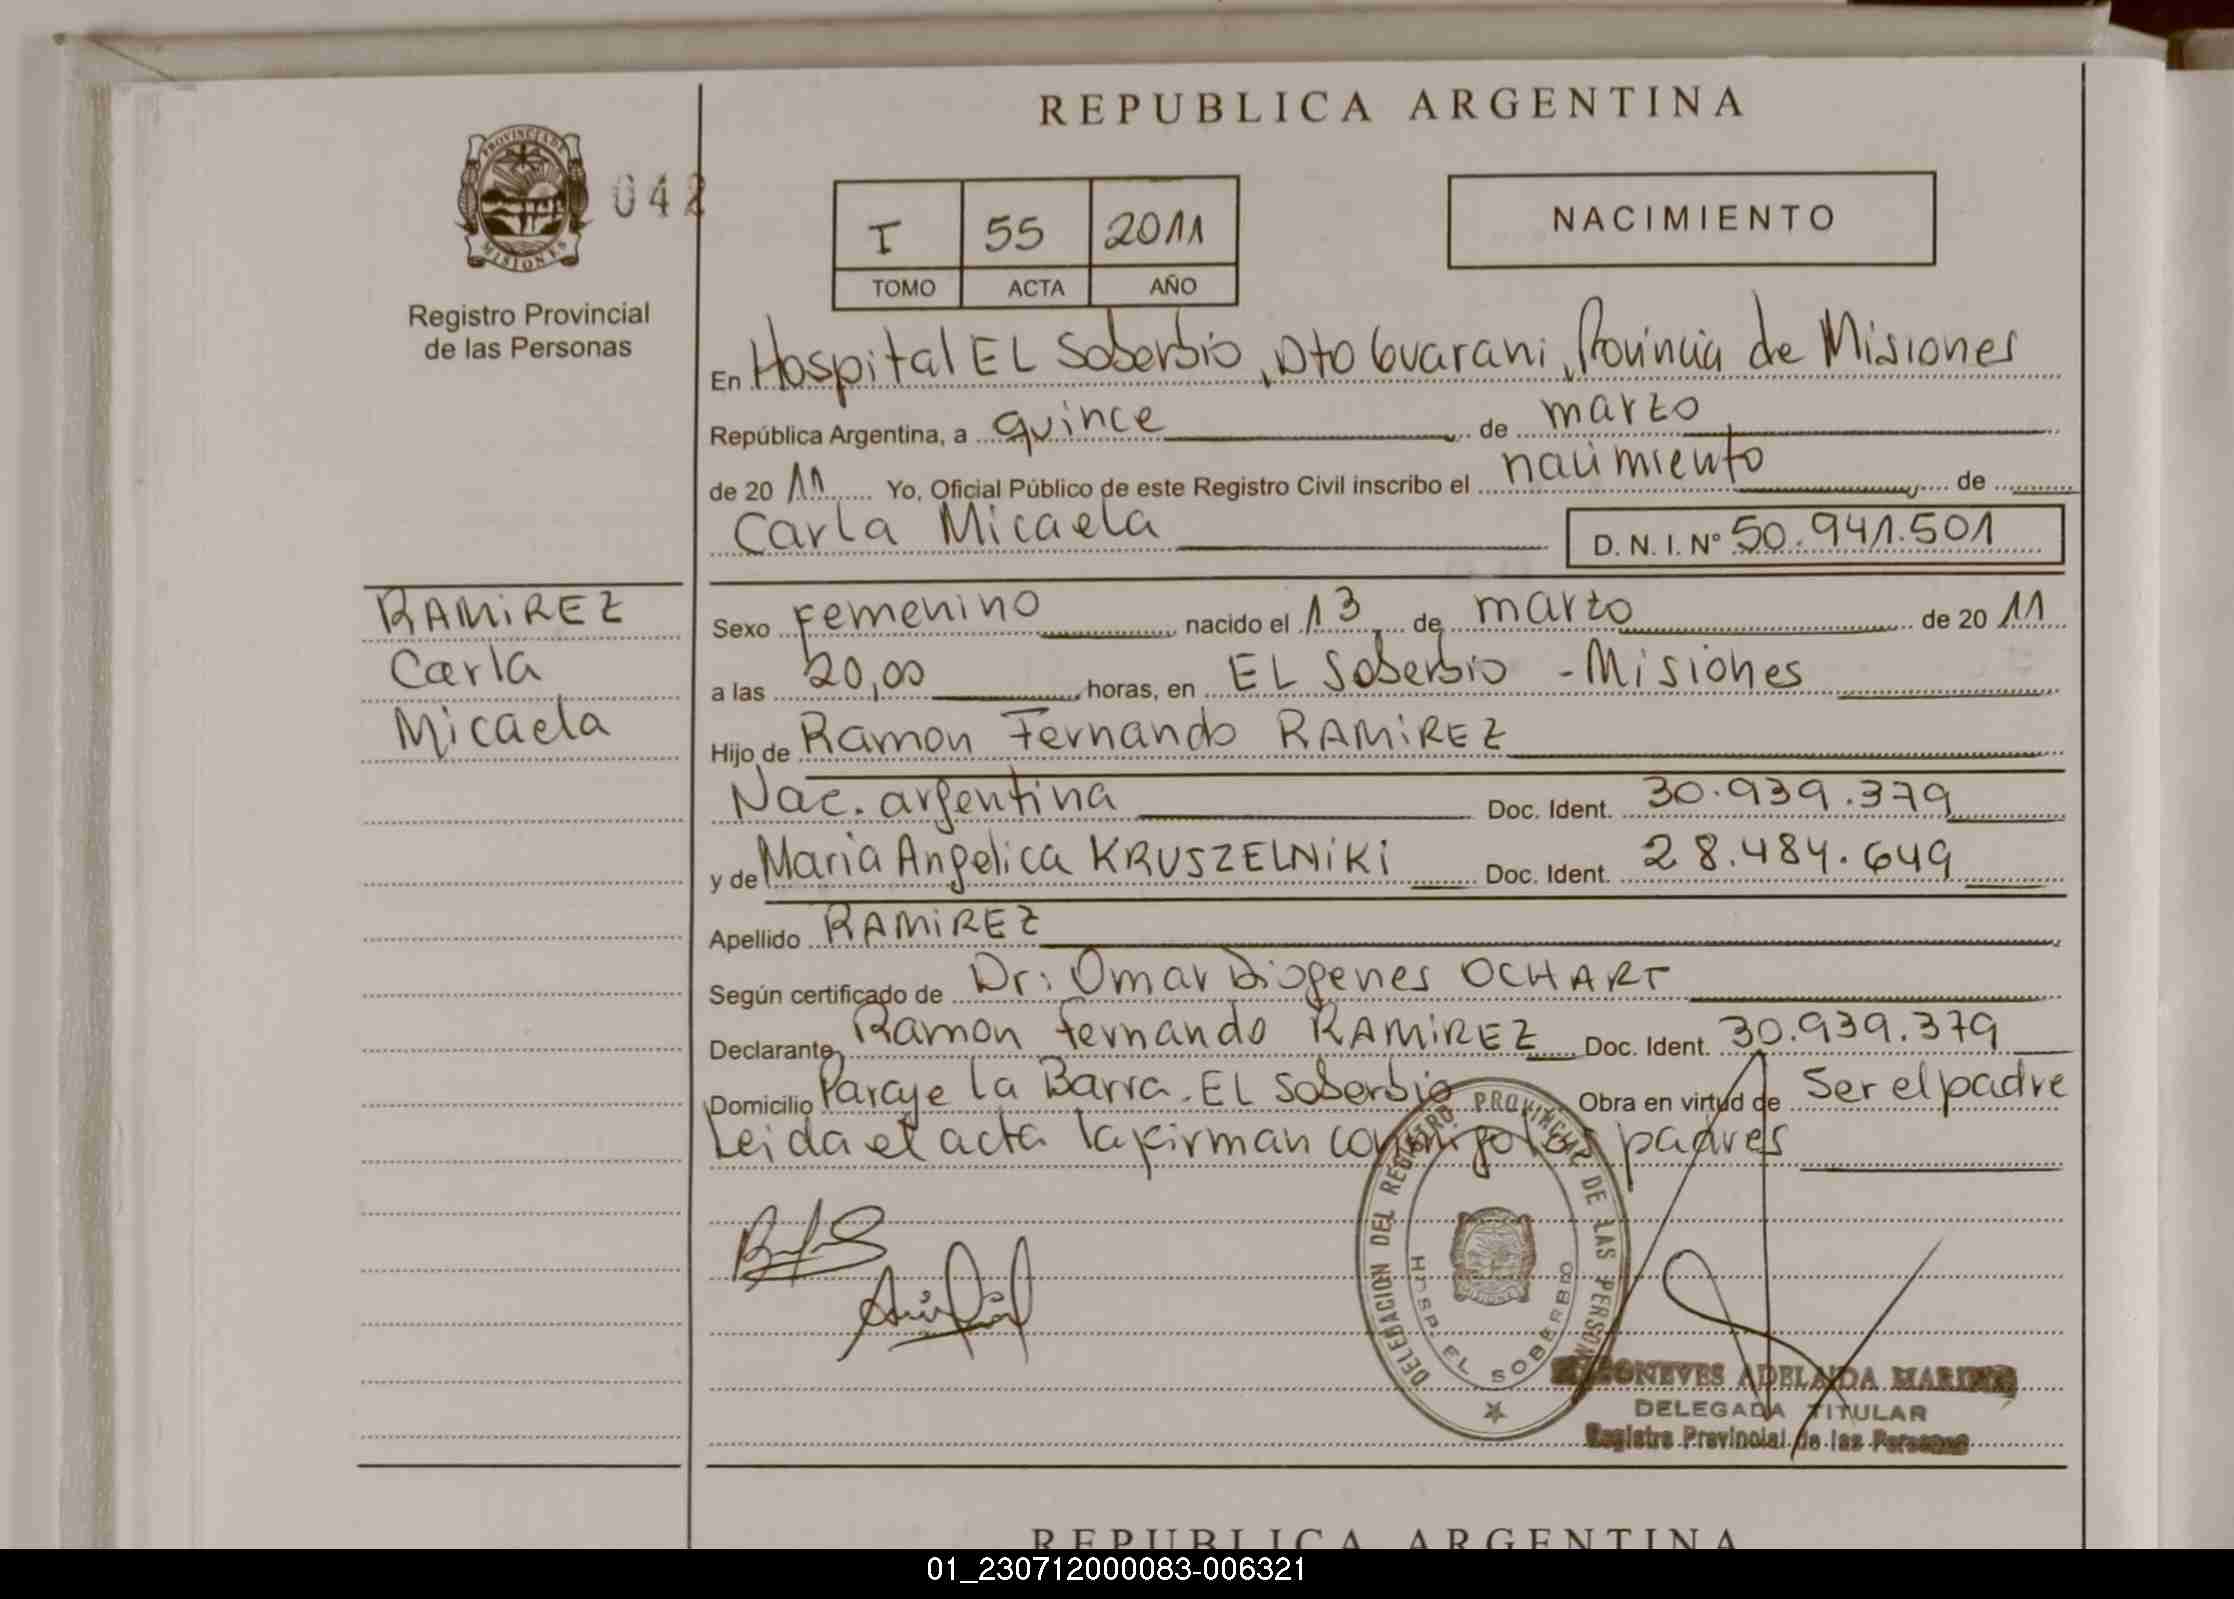 REPUBLICA ARGENTINA
PROVINCIA DE
MISIONES
042
Registro Provincial
de las Personas
I 55 2011
TOMO ACTA AÑO
NACIMIENTO
En Hospital EL Soberbio, Dto Guarani, Provincia de Misiones
República Argentina, a quince de marzo
de 2011 Yo, Oficial Público de este Registro Civil inscribo el nacimiento de
Carla Micaela D. N. I. Nº 50.941.501
RAMIREZ
Carla
Micaela
Sexo Femenino nacido el 13 de marzo de 2011
a las 20,00 horas, en EL Soberbio - Misiones
Hijo de Ramon Fernando RAMIREZ
Nac. argentina Doc. Ident. 30.939.379
y de Maria Angelica KRUSZELNIKI Doc. Ident. 28.484.649
Apellido RAMIREZ
Según certificado de Dr: Omar Diogenes OCHART
Declarante Ramon Fernando RAMIREZ Doc. Ident. 30.939.379
Domicilio Paraje La Barra. EL Soberbio Obra en virtud de Ser el padre
Leida el acta la firman conmigo los padres
DELEGACION DEL REGISTRO PROVINCIAL DE LAS PERSONAS
HOSP. EL SOBERBIO
MISIONES
ADELAIDA
DELEGADA TITULAR
Registro Provincial de las Personas
REPUBLICA ARGENTINA
01_230712000083-006321